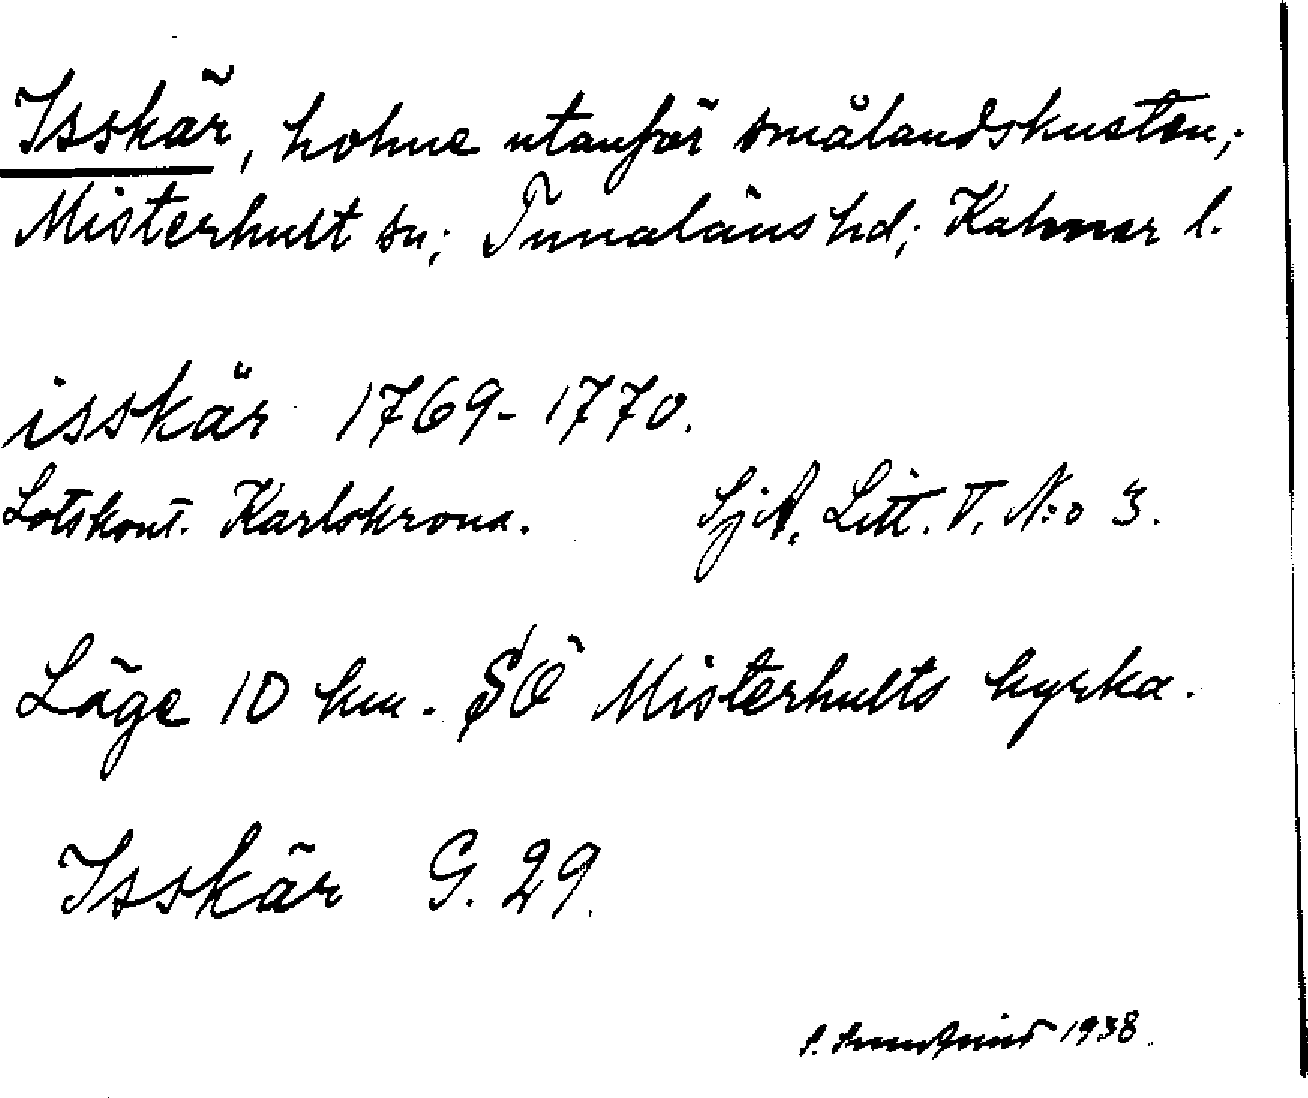 Isskär, holme utanför smålandskusten;
Misterhult sn; Tunaläns hd; Kalmar l.
isskär 1769-1770.
Lotskont. Karlskrona. SjA. Litt. V. N:o 3.
Läge 10 km. SÖ Misterhults kyrka.
Isskär G. 29.
1938.